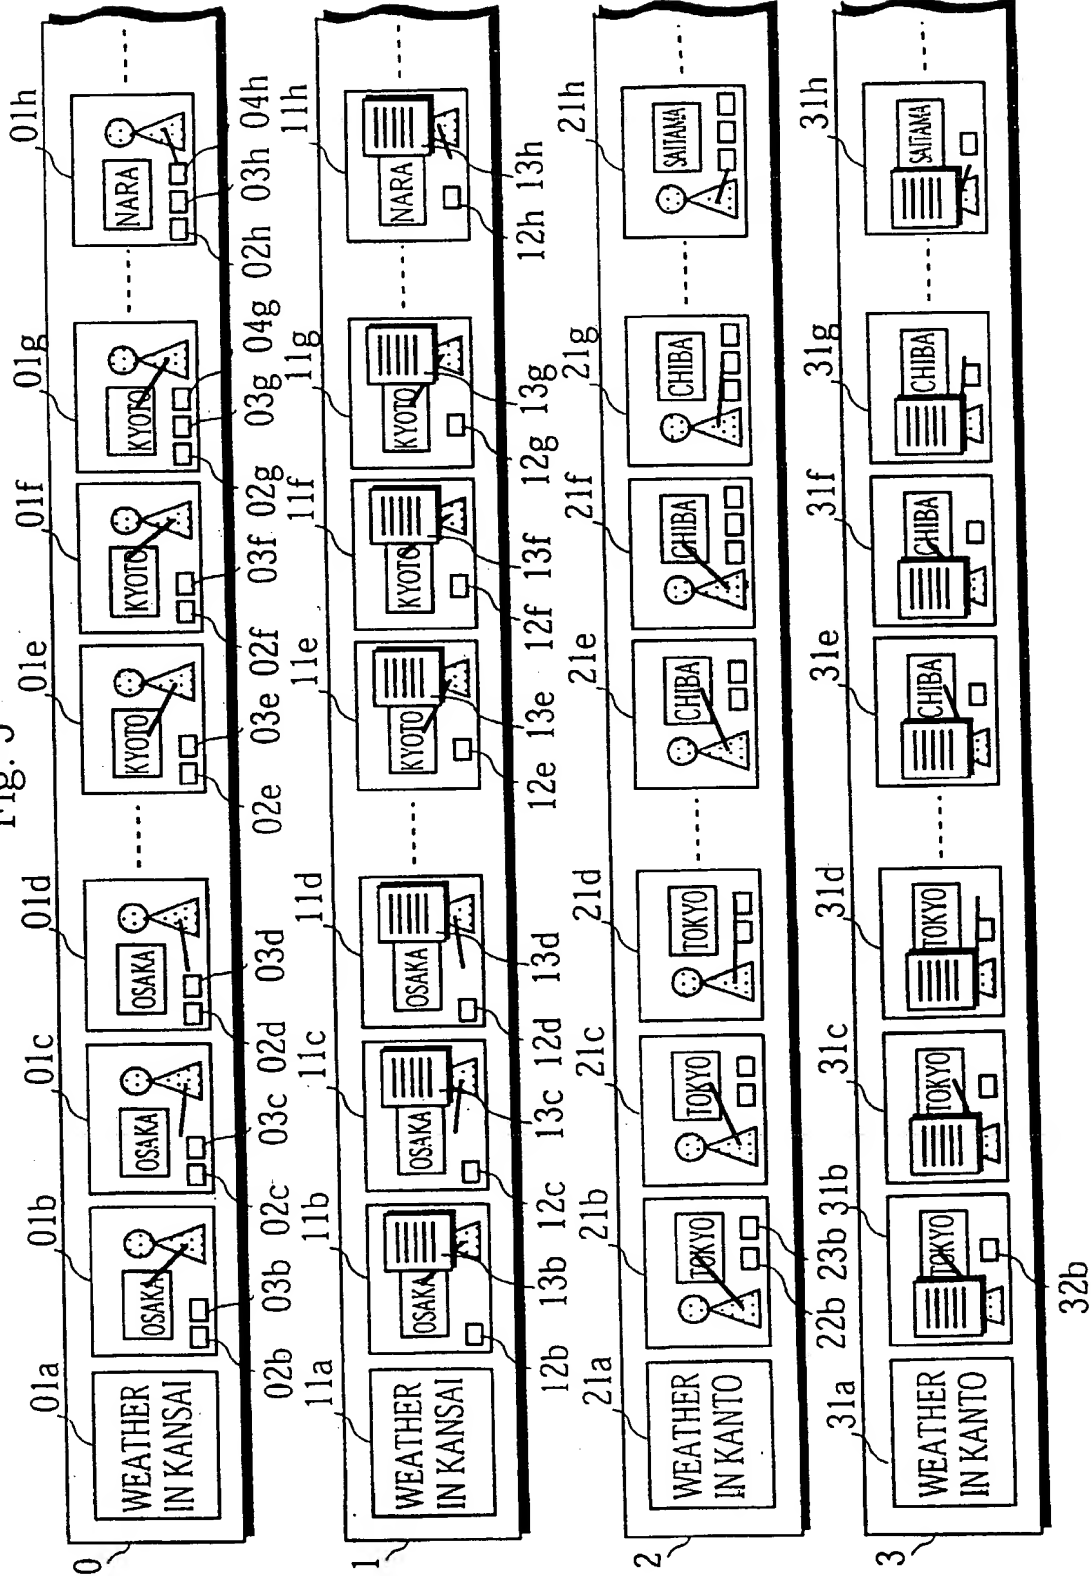 Fig.
01a 01b 01c 01d 01e 01f 01g 01h
WEATHER
IN KANSAI
OSAKA OSAKA OSAKA KYOTO KYOTO KYOTO NARA
0
02b 03b 02c 03c 02d 03d 02e 03e 02f 03f 02g 03g 04g 02h 03h 04h
11a 11b 11c 11d 11e 11f 11g 11h
WEATHER
IN KANSAI
OSAKA OSAKA OSAKA KYOTO KYOTO KYOTO NARA
1
12b 13b 12c 13c 12d 13d 12e 13e 12f 13f 12g 13g 12h 13h
21a 21b 21c 21d 21e 21f 21g 21h
WEATHER
IN KANTO
TOKYO TOKYO TOKYO CHIBA CHIBA CHIBA SAITAMA
2
22b 23b
31a 31b 31c 31d 31e 31f 31g 31h
WEATHER
IN KANTO
TOKYO TOKYO TOKYO CHIBA CHIBA CHIBA SAITAMA
3
32b